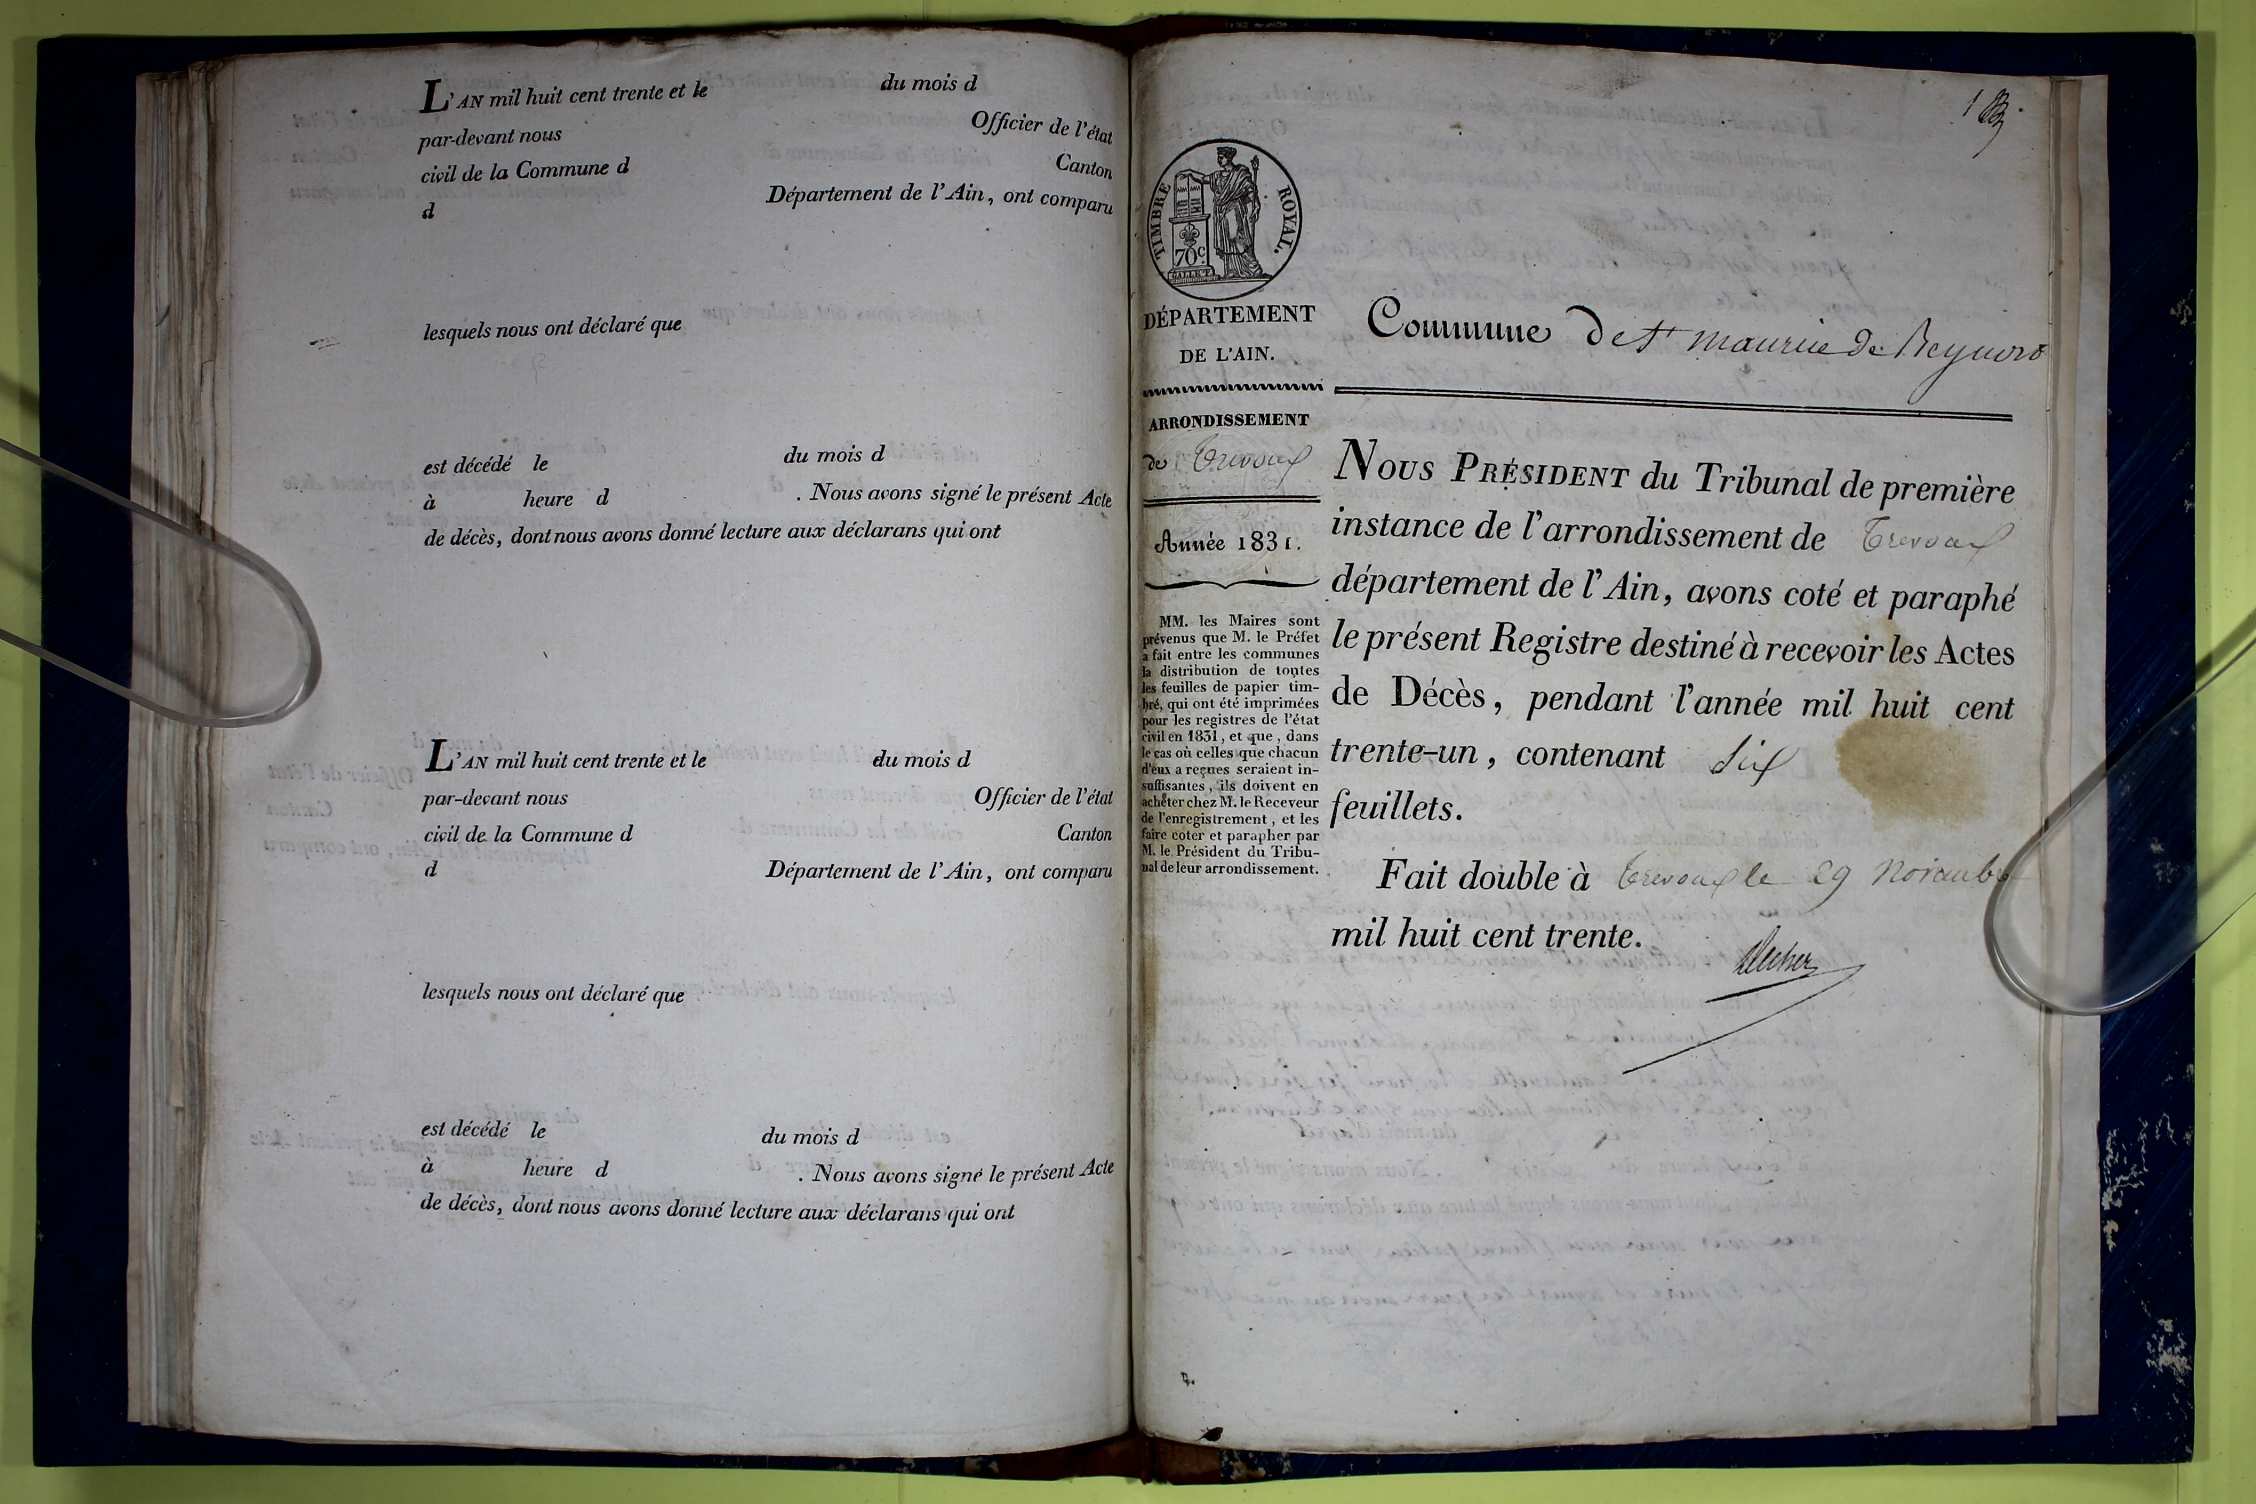 L'AN mil huit cent trente et le du mois d
par-devant nous Officier de l'état
civil de la Commune d Canton
d Département de l'Ain, ont comparu
lesquels nous ont déclaré que
est décédé le du mois d
à heure d . Nous avons signé le présent Acte
de décès, dont nous avons donné lecture aux déclarans qui ont
L'AN mil huit cent trente et le du mois d
par-devant nous Officier de l'état
civil de la Commune d Canton
d Département de l'Ain, ont comparu
lesquels nous ont déclaré que
est décédé le du mois d
à heure d . Nous avons signé le présent Acte
de décès, dont nous avons donné lecture aux déclarans qui ont
1
TIMBRE ROYAL.
70c.
DÉPARTEMENT
DE L'AIN.
ARRONDISSEMENT
de Trevoux
Année 1831.
MM. les Maires sont
prévenus que M. le Préfet
a fait entre les communes
la distribution de toutes
les feuilles de papier tim-
bré, qui ont été imprimées
pour les registres de l'état
civil en 1831, et que, dans
le cas où celles que chacun
d'eux a reçues seraient in-
suffisantes, ils doivent en
acheter chez M. le Receveur
de l'enregistrement, et les
faire coter et parapher par
M. le Président du Tribu-
nal de leur arrondissement.
Commune de St maurice de Beynost
NOUS PRÉSIDENT du Tribunal de première
instance de l'arrondissement de Trevoux
département de l'Ain, avons coté et paraphé
le présent Registre destiné à recevoir les Actes
de Décès, pendant l'année mil huit cent
trente-un, contenant Six
feuillets.
Fait double à Trevoux le 29 Novembre
mil huit cent trente.